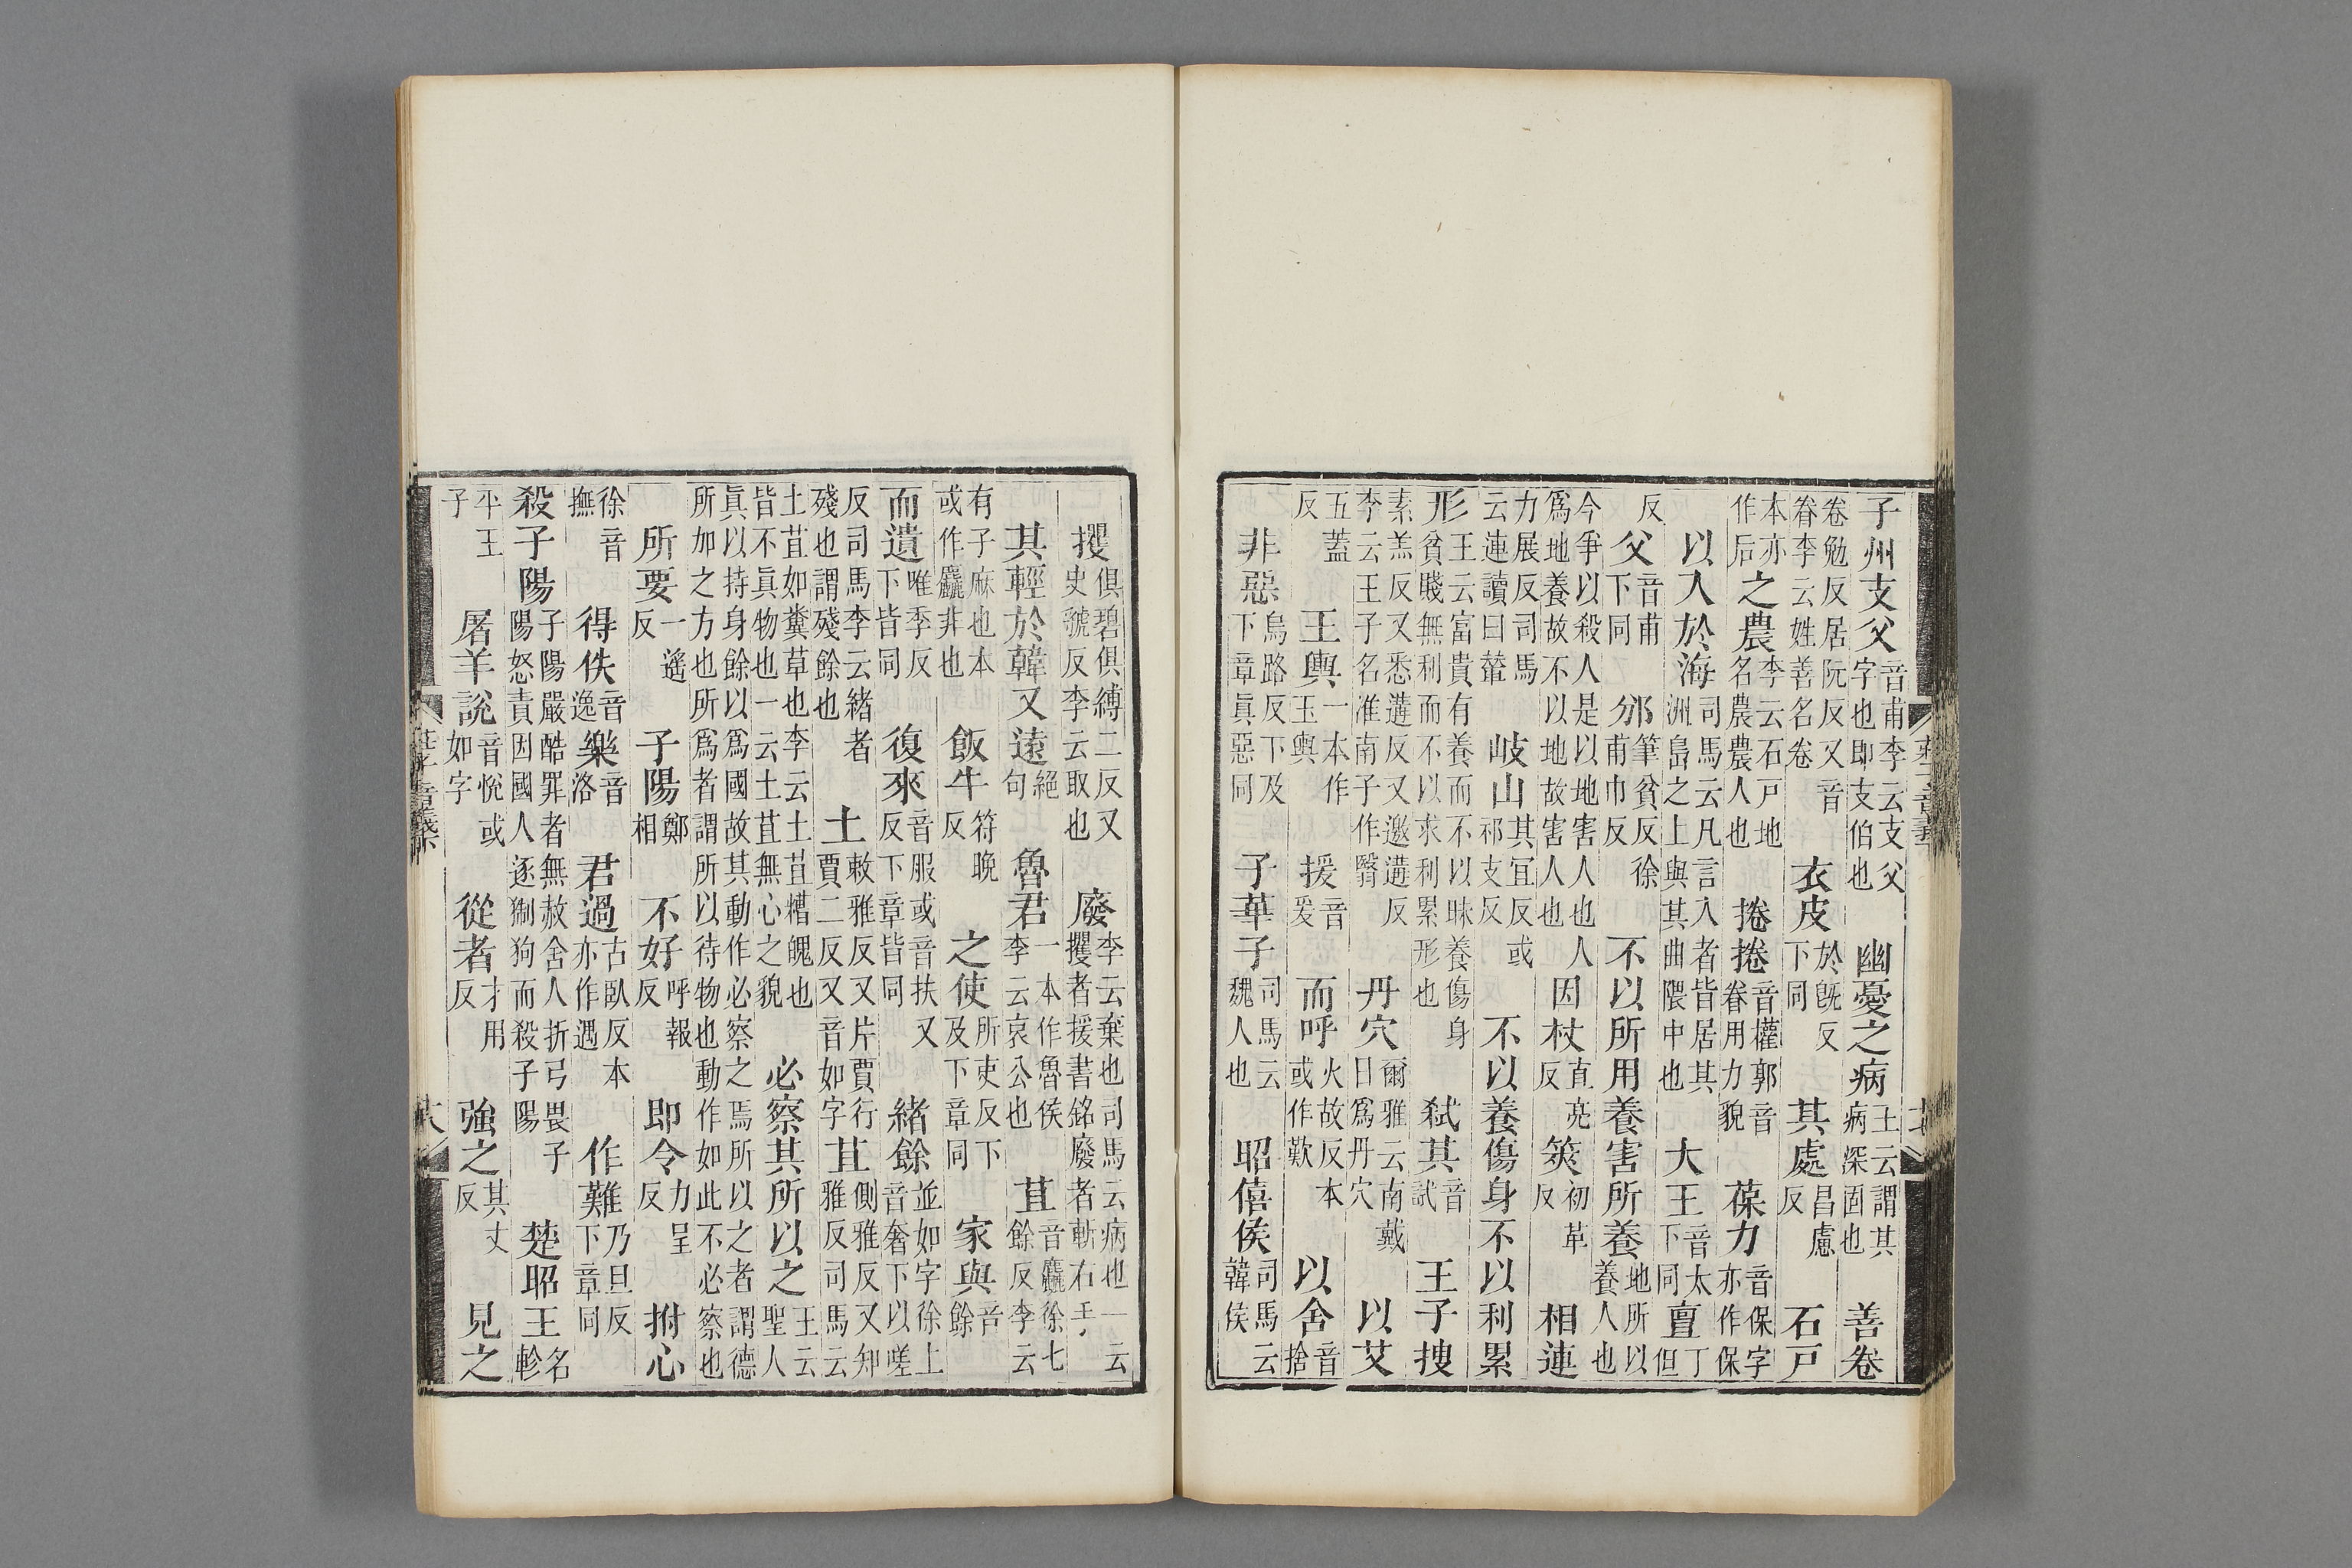 子州支父音甫李云支父字也即支伯也幽憂之病王云謂其病深固也善卷
卷勉反居阮反又音眷李云姓善名卷衣皮於旣反下同其處昌慮反石戸
本亦作后之農李云石戸地名農農人也捲捲音權郭音眷用力貌葆力音保字亦作保
以入於海司馬云凡言入者皆居其洲島之上與其曲隈中也大王音太下同亶丁但
反父音甫下同邠筆貧反徐甫巾反不以所用養害所養地所以養人也
今爭以殺人是以地害人也人爲地養故不以地故害人也因杖直亮反筴初革反相連
力展反司馬云連讀曰輦岐山其宜反或祁支反不以養傷身不以利累
形王云富貴有養而不以昧養傷身貧賤無利而不以求利累形也弑其音試王子搜
素羔反又悉遘反又邀遘反李云王子名淮南子作翳丹穴爾雅云南戴日爲丹穴以艾
五蓋反王輿一本作玉輿援音爰而呼火故反本或作歎以舍音捨
非惡烏路反下及下章眞惡同子華子司馬云魏人也昭僖侯司馬云韓侯
攫俱碧俱縛二反又史虢反李云取也廢李云棄也司馬云病也一云攫者援書銘廢者斬右手
其輕於韓又遠絕句魯君一本作魯侯李云哀公也苴音麤徐七餘反李云
有子麻也本或作麤非也飯牛符晚反之使所吏反下及下章同家與音餘
而遺唯季反下皆同復來音服或音扶又反下章皆同緒餘並如字徐上音奢下以嗟
反司馬李云緒者殘也謂殘餘也土敕雅反又片賈行賈二反又音如字苴側雅反又知雅反司馬云
土苴如糞草也李云土苴糟魄也皆不眞物也一云土苴無心之貌必察其所以之王云聖人
眞以持身餘以爲國故其動作必察之焉所以之者謂德所加之方也所爲者謂所以待物也動作如此不必察也
所要一遙反子陽鄭相不好呼報反即令力呈反拊心
徐音撫得佚音逸樂音洛君過古臥反本亦作遇作難乃旦反下章同
殺子陽子陽嚴酷罪者無赦舍人折弓畏子陽怒責因國人逐猘狗而殺子陽楚昭王名軫
平王子屠羊說音悅或如字從者才用反強之其丈反見之